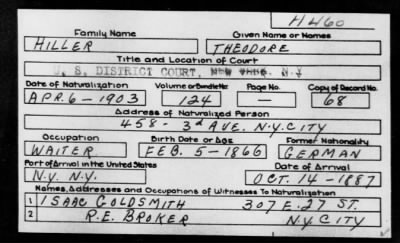 H460
Family Name Given Name or Names
HILLER THEODORE
Title and Location of Court
U. S. DISTRICT COURT, NEW YORK. N.Y
Date of Naturalization Volume or Bundle No. Page No. Copy of Record No.
APR. 6-1903 124 — 68
Address of Naturalized Person
458- 3d AVE. N.Y.CITY
Occupation Birth Date or Age Former Nationality
WAITER FEB. 5-1866 GERMAN
Port of Arrival in the United States Date of Arrival
N.Y. N.Y. OCT. 14-1887
Names, Addresses and Occupations of Witnesses To Naturalization
1 ISAAC GOLDSMITH 307 E. 27 ST.
2 R.E. BROKER N.Y. CITY